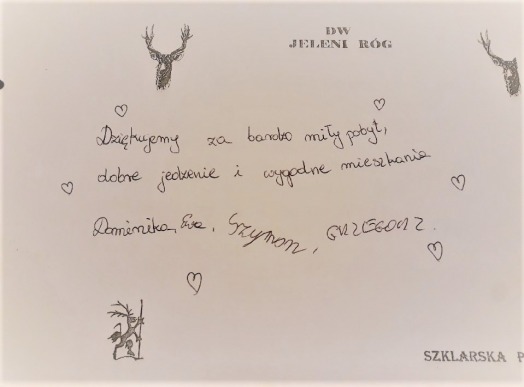 DW
JELENI RÓG
Dziękujemy za bardzo miły pobyt,
dobre jedzenie i wygodne mieszkanie
Dominika, Ewa, Szymon, GRZEGORZ.
SZKLARSKA P